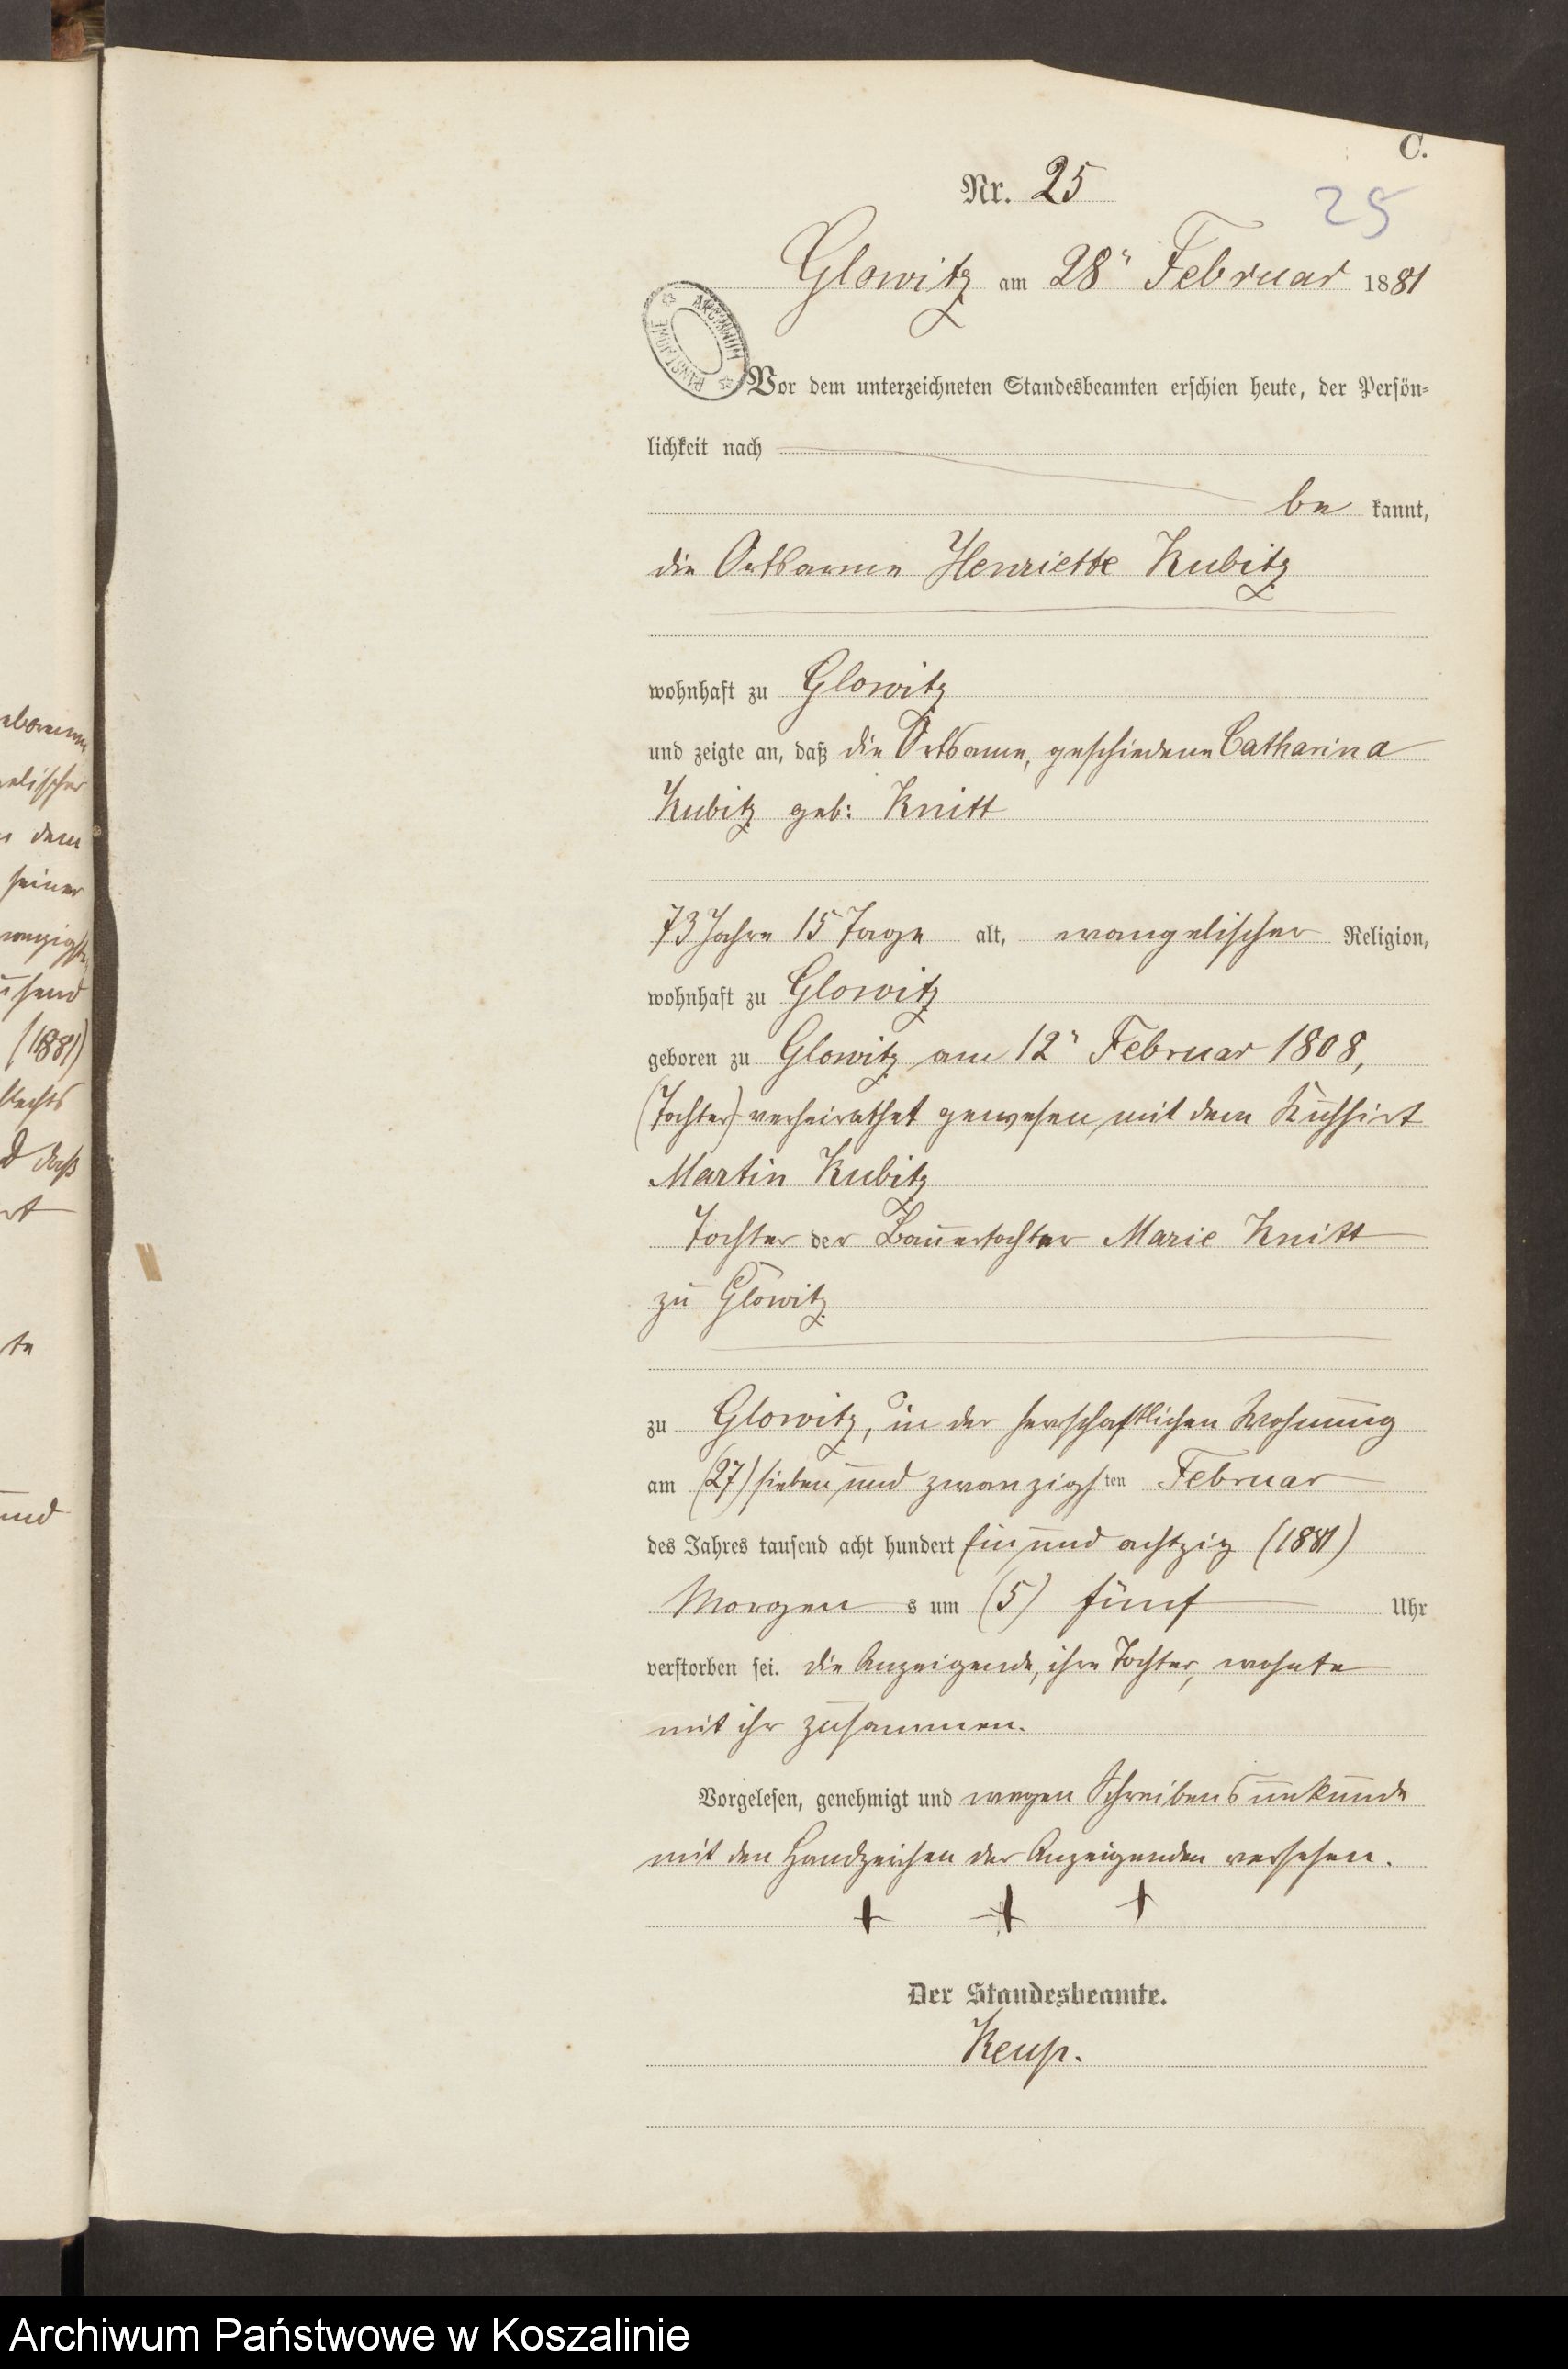 C.
Nr. 25
25
Glowitz am 28" Februar 1881
ARCHIWUM PAŃSTWOWE
Vor dem unterzeichneten Standesbeamten erschien heute, der Persön-
lichkeit nach
be kannt,
die Ortsarme Henriette Kubitz
wohnhaft zu Glowitz
und zeigte an, daß die Ortsarme, geschiedene Catharina
Kubitz geb: Knitt
73 Jahre 15 Tage alt, evangelischer Religion,
wohnhaft zu Glowitz
geboren zu Glowitz am 12" Februar 1808,
(Tochter) verheirathet gewesen mit dem Kuhhirt
Martin Kubitz
Tochter der Bauertochter Marie Knitt
zu Glowitz
zu Glowitz, in der herschaftlichen Wohnung
am (27) sieben und zwanzigsten Februar
des Jahres tausend acht hundert ein und achtzig (1881)
Morgen s um (5) fünf Uhr
verstorben sei. die Anzeigende, ihre Tochter, wohnte
mit ihr zusammen.
Vorgelesen, genehmigt und wegen Schreibensunkunde
mit den Handzeichen der Anzeigenden versehen.
+ + +
Der Standesbeamte.
Keup.
elischer
dem
seiner
(1881)
daß
te
und
Archiwum Państwowe w Koszalinie